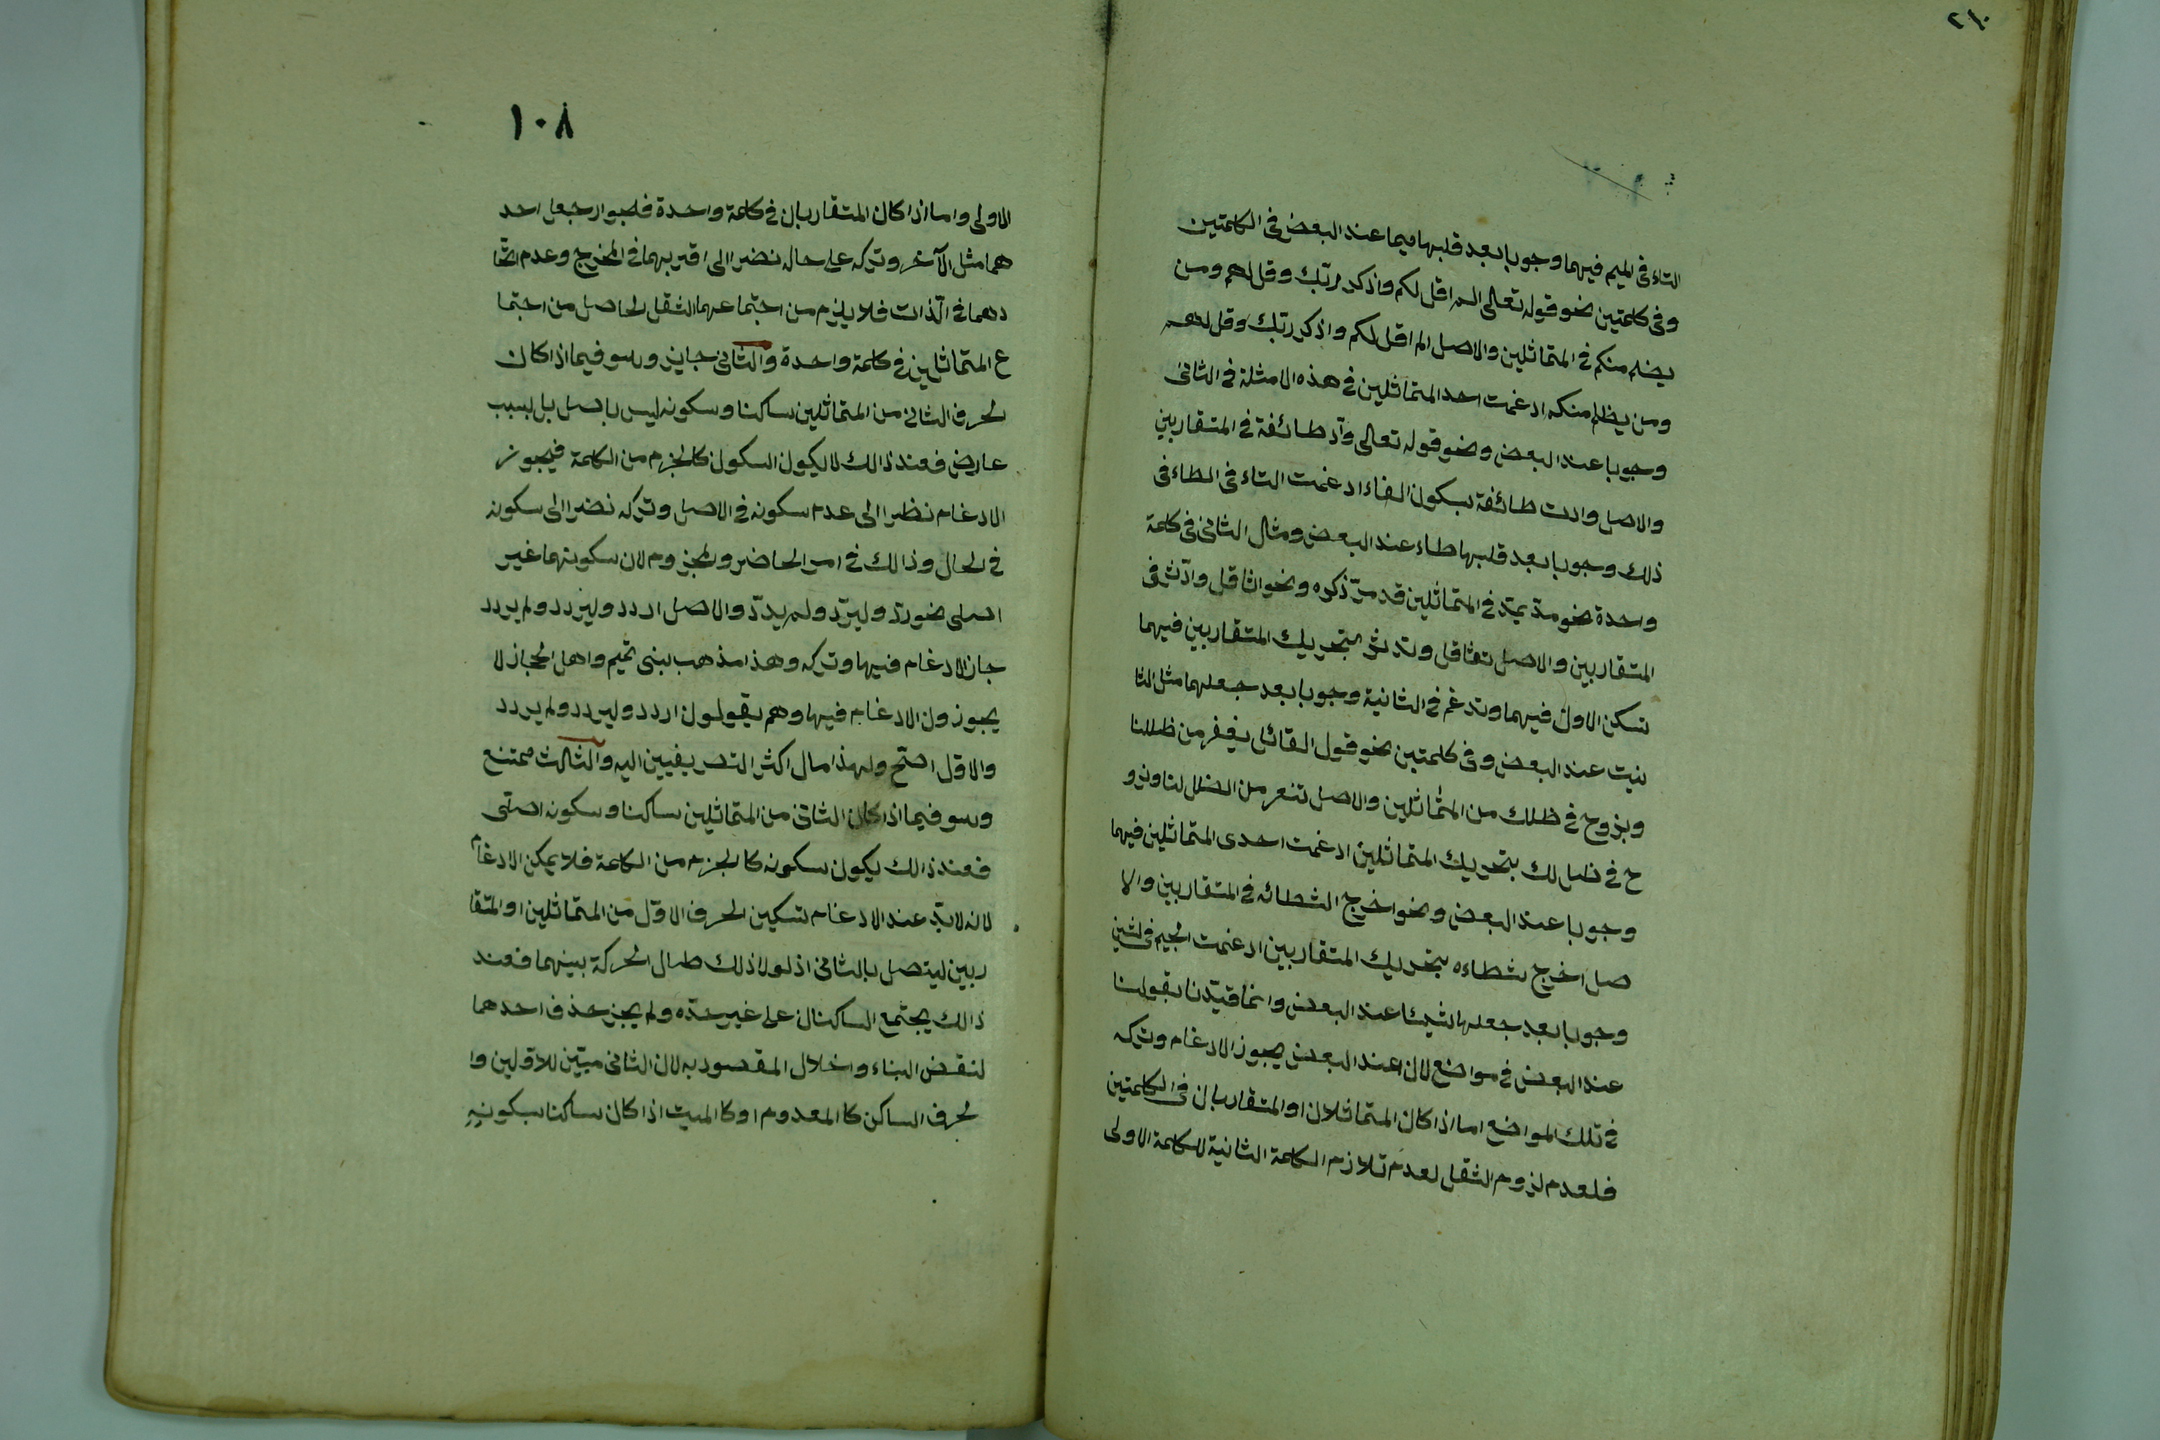 ٢١٠
التاء في الميم فيهما وجوبا بعد قلبها ميما عند البعض في الكلمتين
وفي كلمتين نحو قوله تعالى الم اقل لكم واذكر ربّك وقل لهم ومن
يظلم منكم في المتماثلين والاصل الم اقل لكم واذكر ربّك وقل لهم
ومن يظلم منكم ادغمت احد المتماثلين في هذه الامثلة في الثاني
وجوبا عند البعض ونحو قوله تعالى وَدّ طائفة في المتقاربين
والاصل وادت طائفة بسكون الفاء ادغمت التاء في الطاء في
ذلك وجوبا بعد قلبها طاء عند البعض ومثال الثاني في كلمة
واحدة نحو مدّ يمدّ في المتماثلين قد مرّ ذكره ونحو اثاقل وادّثر في
المتقاربين والاصل تثاقل وتدثر بتحريك المتقاربين فيهما
تسكن الاولى فيهما وتدغم في الثانية وجوبا بعد جعلهما مثل الثا
نيت عند البعض وفي كلمتين نحو قول القائل من ظللنا
وبزوح في ظلك من المتماثلين والاصل من الظلل لنا ونرو
ح في ظلل لك بتحريك المتماثلين ادغمت احدى المتماثلين فيهما
وجوبا عند البعض ونحو اخرج الشطائه في المتقاربين والا
صل اخرج شطاءه بتحريك المتقاربين ادغمت الجيم في الشين
وجوبا بعد جعلها شيئا عند البعض وانما قيّدنا بقولنا
عند البعض في مواضع لان عند البعض يجوز الادغام وتركه
في تلك المواضع اما اذا كان المتماثلان او المتقاربان في الكلمتين
فلعدم لزوم الثقل لعدم تلازم الكلمة الثانية للكلمة الاولى
١٠٨
الاولى واما اذا كان المتقاربان في كلمة واحدة فلجواز جعل احد
هما مثل الآخر وتركه على حاله نضرا الى اقتربهما في المخرج وعدم اتحا
دهما في الذات فلا يلزم من اجتماعهما الثقل الحاصل من اجتما
ع المتماثلين في كلمة واحدة والثاني جايز وهو فيما اذا كان
الحرف الثاني من المتماثلين ساكنا وسكونه ليس باصل بل بسبب
عارض فعند ذالك لا يكون السكون كالجزم من الكلمة فيجوز
الادغام نظرا الى عدم سكونه في الاصل وتركه نضرا الى سكونه
في الحال وذالك في امر الحاضر والمجزوم لان سكونهما غير
اصلى نحو ردّ وليردّ ولم يردّ والاصل اردد وليردد ولم يردد
جاز الادغام فيها وتركه وهذا مذهب بنى تميم واهل الحجاز لا
يجوزون الادغام فيها وهم يقولون اردد وليردد ولم يردد
والاوّل اصحّ ولهذا مال اكثر التصريفيين اليه والثالث ممتنع
وهو فيما اذا كان الثاني من المتماثلين ساكنا وسكونه اصلى
فعند ذالك يكون سكونه كالجزم من الكلمة فلا يمكن الادغا
لانه لا بدّ عند الادغام تسكين الحرف الاوّل من المتماثلين او المتقا
ربين ليتصل بالثاني اذ لولا ذلك طال الحركة بينهما فعند
ذالك يجتمع الساكنان على غير حدّه ولم يجز حذف احدهما
لنقض البناء واخلال المقصود به لان الثاني مبيّن للاوّلين وا
لحرف الساكن كالمعدوم او كالميت اذا كان ساكنا بسكونه